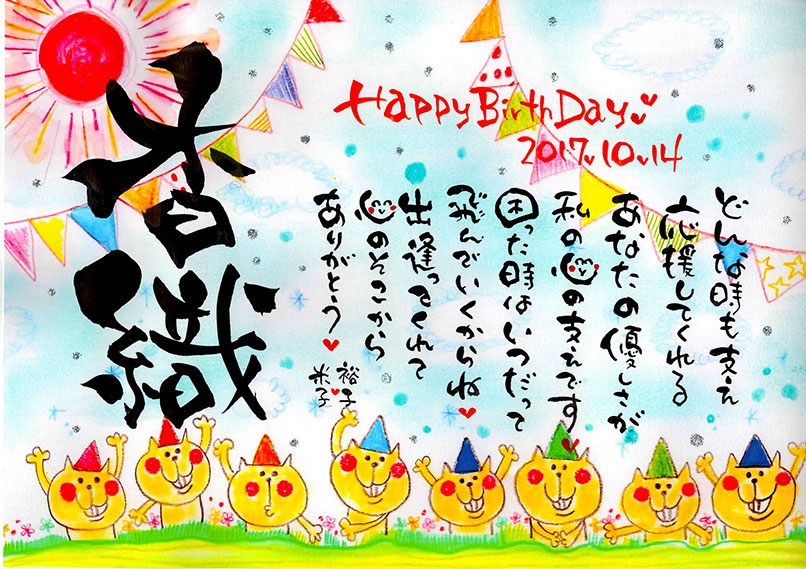 香織
Happy BirthDay
2017.10.14
どんな時も支え
応援してくれる
あなたの優しさが
私の心の支えです
困った時はいつだって
飛んでいくからね
出逢ってくれて
心のそこから
ありがとう
裕子
米子